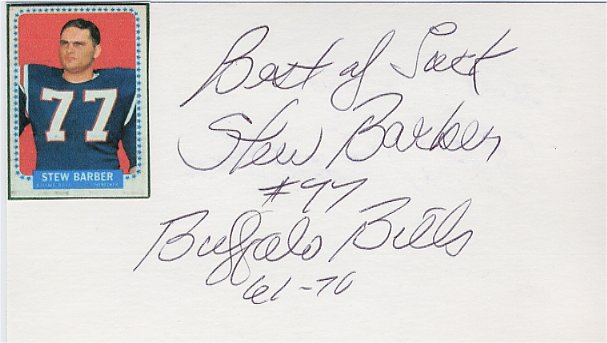 77
STEW BARBER
Best of Luck
Stew Barber
#77
Buffalo Bills
61-70